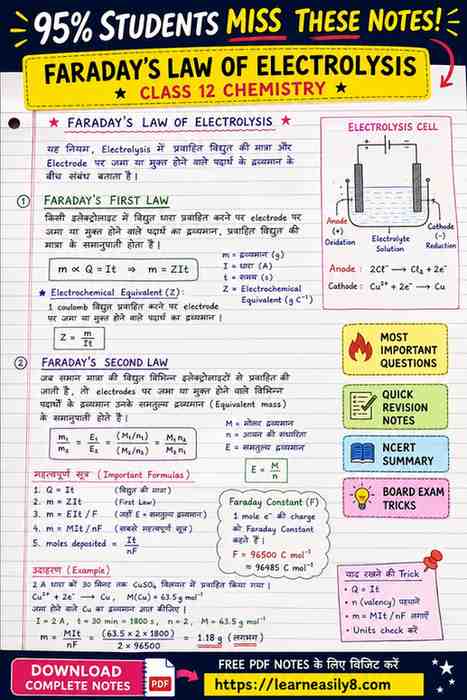 95% STUDENTS MISS THESE NOTES!
FARADAY'S LAW OF ELECTROLYSIS
★ CLASS 12 CHEMISTRY ★
★ FARADAY'S LAW OF ELECTROLYSIS ★
यह नियम, Electrolysis में प्रवाहित विद्युत की मात्रा और
Electrode पर जमा या मुक्त होने वाले पदार्थ के द्रव्यमान के
बीच संबंध बताता है।
① FARADAY'S FIRST LAW
किसी इलेक्ट्रोलाइट में विद्युत धारा प्रवाहित करने पर electrode पर
जमा या मुक्त होने वाले पदार्थ का द्रव्यमान, प्रवाहित विद्युत की
मात्रा के समानुपाती होता है।
m ∝ Q = It ⇒ m = ZIt
m = द्रव्यमान (g)
I = धारा (A)
t = समय (s)
Z = Electrochemical
Equivalent (g C⁻¹)
★ Electrochemical Equivalent (Z):
1 coulomb विद्युत प्रवाहित करने पर electrode
पर जमा या मुक्त होने वाले पदार्थ का द्रव्यमान।
Z = m/It
② FARADAY'S SECOND LAW
जब समान मात्रा की विद्युत विभिन्न इलेक्ट्रोलाइटों से प्रवाहित की
जाती है, तो electrodes पर जमा या मुक्त होने वाले विभिन्न
पदार्थों के द्रव्यमान उनके समतुल्य द्रव्यमान (Equivalent mass)
के समानुपाती होते है।
m₁/m₂ = E₁/E₂ = (M₁/n₁)/(M₂/n₂) = M₁n₂/M₂n₁
M = मोलर द्रव्यमान
n = आयन की संधारिता
E = समतुल्य द्रव्यमान
E = M/n
महत्वपूर्ण सूत्र (Important Formulas)
1. Q = It (विद्युत की मात्रा)
2. m = ZIt (First Law)
3. m = EIt / F (जहाँ E = समतुल्य द्रव्यमान)
4. m = MIt / nF (सबसे महत्वपूर्ण सूत्र)
5. moles deposited = It/nF
Faraday Constant (F)
1 mole e⁻ की charge
को Faraday Constant
कहते हैं।
F = 96500 C mol⁻¹
≈ 96485 C mol⁻¹
उदाहरण (Example)
2 A धारा को 30 मिनट तक CuSO₄ विलयन में प्रवाहित किया गया।
Cu²⁺ + 2e⁻ ⟶ Cu, M(Cu) = 63.5 g mol⁻¹
जमा होने वाले Cu का द्रव्यमान ज्ञात कीजिए।
I = 2 A, t = 30 min = 1800 s, n = 2, M = 63.5 g mol⁻¹
m = MIt/nF = (63.5 × 2 × 1800)/(2 × 96500) = 1.18 g (लगभग)
ELECTROLYSIS CELL
+ −
Anode
(+)
Oxidation
Electrolyte
Solution
Cathode
(-)
Reduction
Anode : 2Cl⁻ ⟶ Cl₂ + 2e⁻
Cathode : Cu²⁺ + 2e⁻ ⟶ Cu
MOST
IMPORTANT
QUESTIONS
QUICK
REVISION
NOTES
NCERT
SUMMARY
BOARD EXAM
TRICKS
याद रखने की Trick
• Q = It
• n (valency) पहचानें
• m = MIt / nF लगाएँ
• Units check करें
DOWNLOAD
COMPLETE NOTES
PDF
FREE PDF NOTES के लिए विजिट करें
https://learneasily8.com